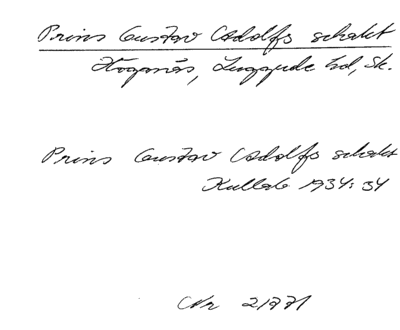 Prins Gustav Adolfs schakt
Höganäs, Luggude hd, Sk.
Prins Gustav Adolfs schakt
Kullab 1934: 34
Nr 21771